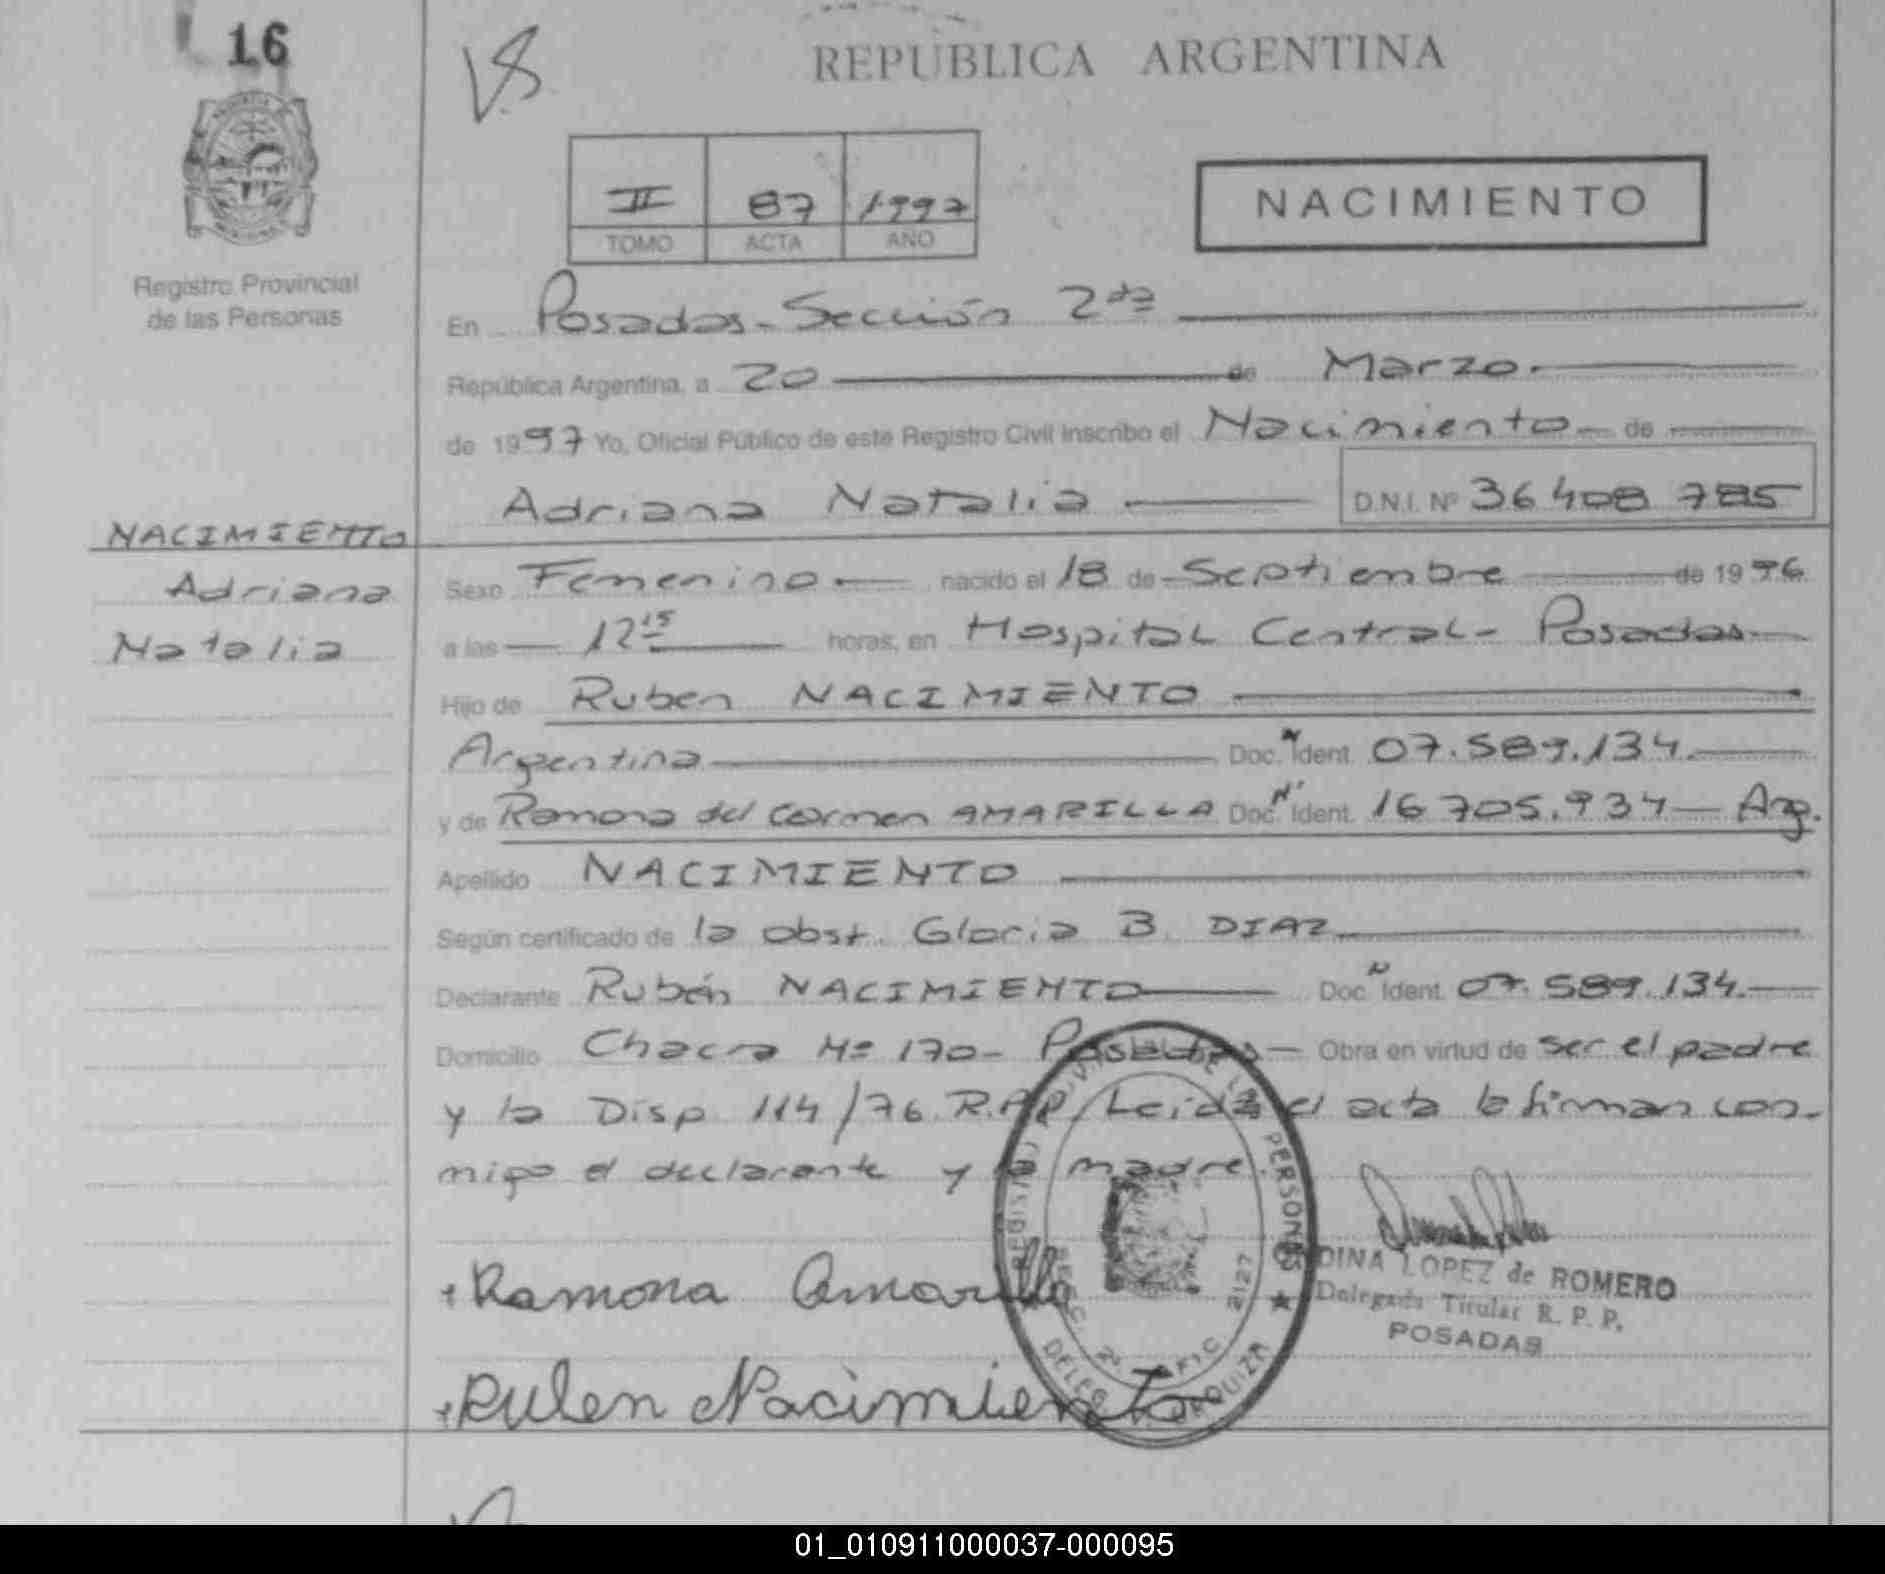 16
VS
REPUBLICA ARGENTINA
II 87 1997
TOMO ACTA AÑO
NACIMIENTO
Registro Provincial
de las Personas
En Posadas - Sección 2da
República Argentina, a 20 de Marzo.
de 1997 Yo, Oficial Público de este Registro Civil Inscribo el Nacimiento de
Adriana Natalia D.N.I. Nº 36 408 785
NACIMIENTO
Adriana
Natalia
Sexo Femenino nacido el 18 de Septiembre de 1996
a las 12 15 horas, en Hospital Central - Posadas
Hijo de Ruben NACIMIENTO
Argentina Doc. N Ident. 07.589.134.
y de Ramona del Carmen AMARILLA Doc. N° Ident. 16 705.934 Arg.
Apellido NACIMIENTO
Según certificado de la obst. Gloria B. DIAZ
Declarante Rubén NACIMIENTO Doc. N Ident. 07.589.134.
Domicilio Chacra Nº 170 - Posadas Obra en virtud de ser el padre
y la Disp 114/76 R.P.P. Leída el acta la firman con-
migo el declarante y la madre.
Ramona Amarilla
Ruben Nacimiento
DINA LOPEZ de ROMERO
Delegada Titular R. P. P.
POSADAS
DE LAS PERSONAS
SECC. 2ª OFIC. 2127
01_010911000037-000095